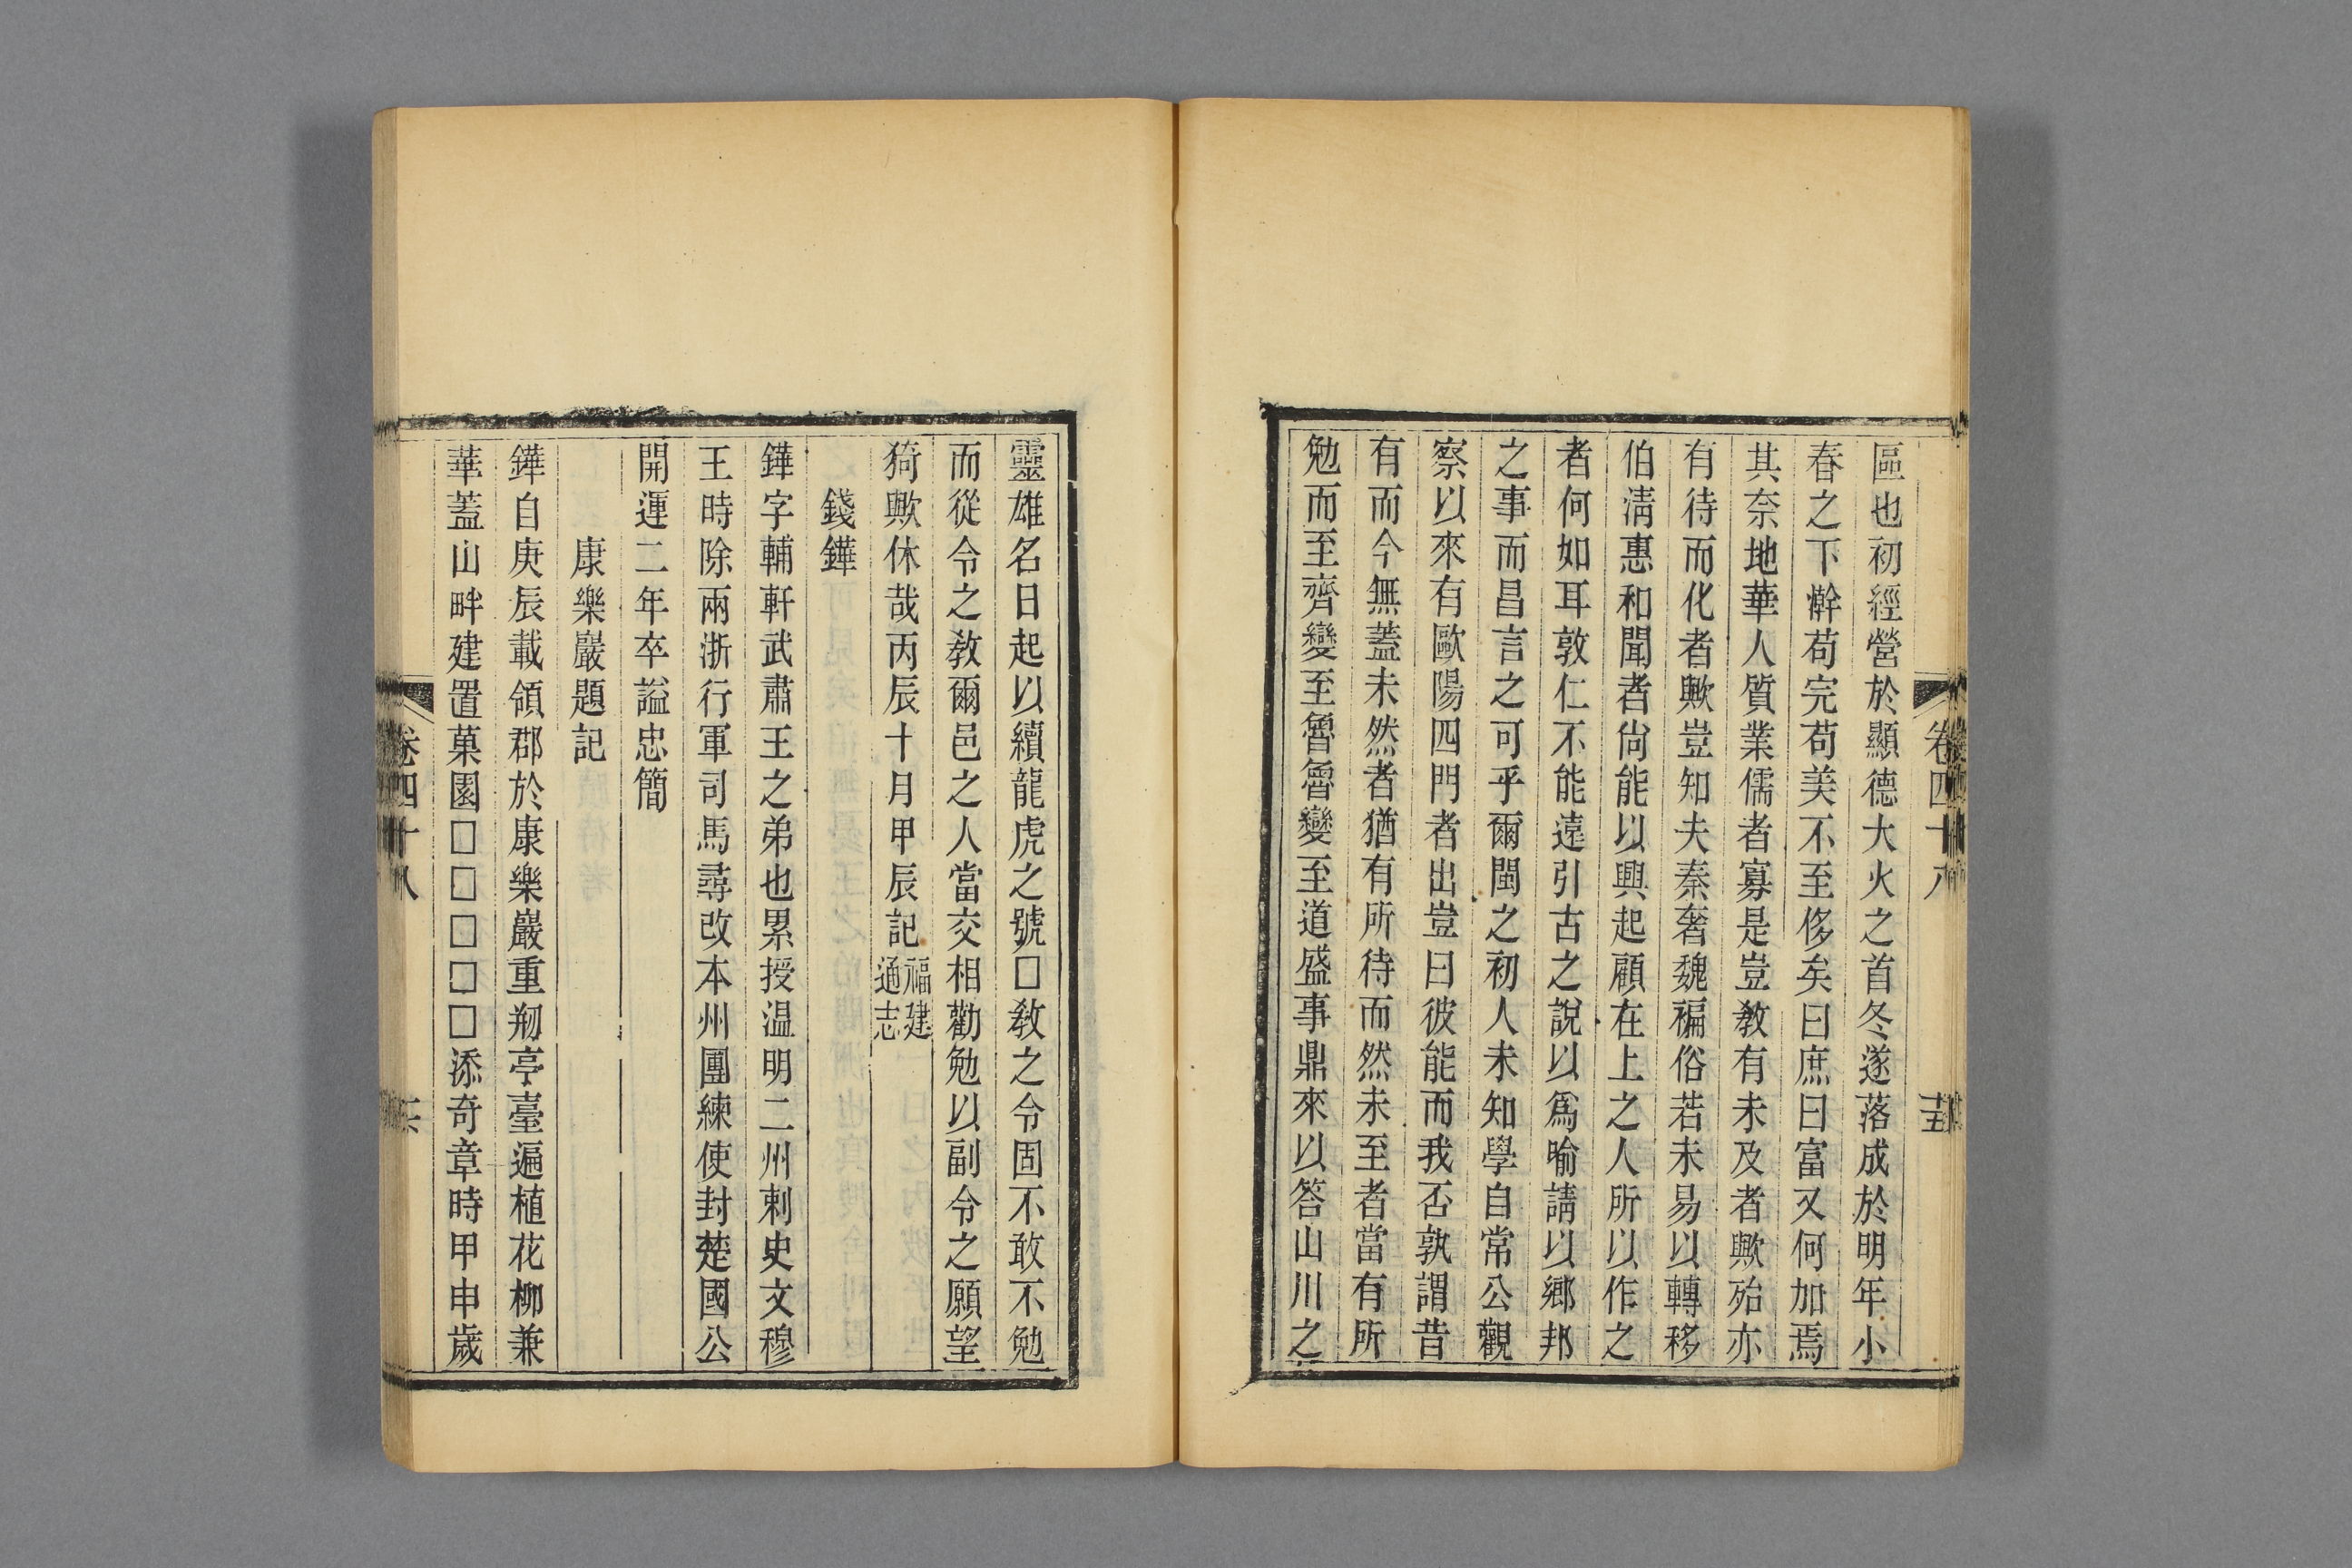 區也初經營於顯德大火之首冬遂落成於明年小
春之下澣苟完苟美不至侈矣曰庶曰富又何加焉
其奈地華人質業儒者寡是豈敎有未及者歟殆亦
有待而化者歟豈知夫秦奢魏褊俗若未易以轉移
伯淸惠和聞者尙能以興起顧在上之人所以作之
者何如耳敦仁不能遠引古之說以爲喻請以鄉邦
之事而昌言之可乎爾閩之初人未知學自常公觀
察以來有歐陽四門者出豈曰彼能而我否孰謂昔
有而今無蓋未然者猶有所待而然未至者當有所
勉而至齊變至魯魯變至道盛事鼎來以答山川之
卷四十八
靈雄名日起以續龍虎之號□敎之令固不敢不勉
而從令之敎爾邑之人當交相勸勉以副令之願望
猗歟休哉丙辰十月甲辰記福建通志
錢鏵
鏵字輔軒武肅王之弟也累授温明二州刺史文穆
王時除兩浙行軍司馬尋改本州團練使封楚國公
開運二年卒謚忠簡
康樂巖題記
鏵自庚辰載領郡於康樂巖重剙亭臺遍植花柳兼
華蓋山畔建置菓園□□□□□添奇章時甲申歲
卷四十八